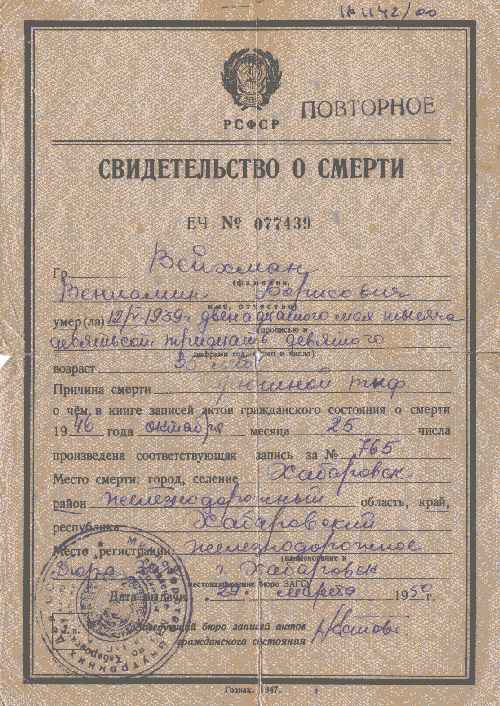 РСФСР
ПОВТОРНОЕ
СВИДЕТЕЛЬСТВО О СМЕРТИ
ЕЧ № 077439
Гр. Вейхман
(фамилия,
Вениамин Борисович
имя, отчество)
умер(ла) 12/V-1939г двенадцатого мая тысяча
(прописью и
девятьсот тридцать девятого
цифрами год, месяц и число)
возраст
Причина смерти брюшной тиф
о чём, в книге записей актов гражданского состояния о смерти
1946 года октября месяца 25 числа
произведена соответствующая запись за № 765
Место смерти: город, селение Хабаровск
район Железнодорожный область, край,
республика Хабаровский
Место регистрации: Железнодорожное
(наименование и
Бюро г. Хабаровск
местонахождение бюро ЗАГС)
Дата выдачи 29 марта 195 г.
Заведующий бюро записей актов
гражданского состояния
Гознак. 1947.